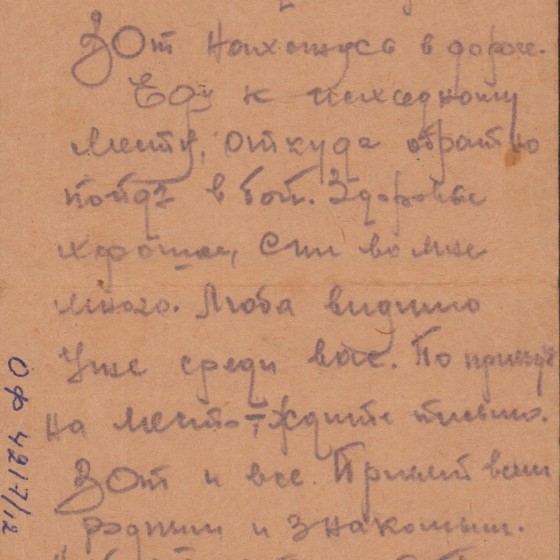 Вот нахожусь в дороге.
Еду к исходному
месту, откуда обратно
пойду в бой. Здоровье
хорошее, сил во мне
много. Люба видимо
уже среди вас. По приезде
на место – ждите письмо.
Вот и все. Привет всем
родным и знакомым.
ОФ 4217/12